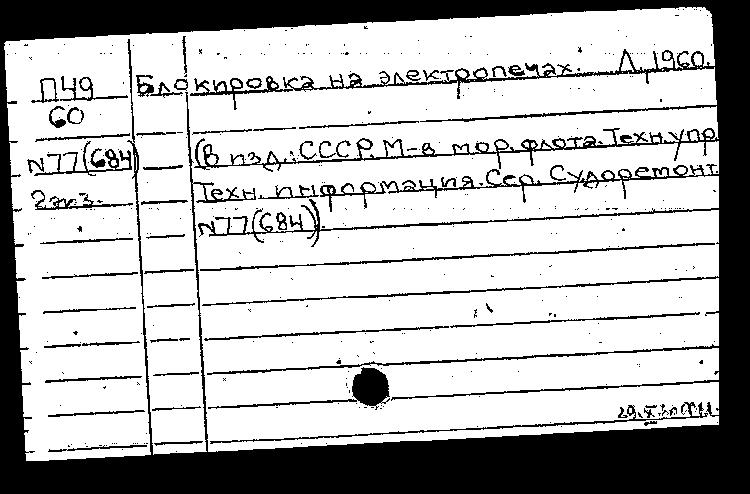 П49
60
N77(684)
2 экз.
Блокировка на электропечах. Л, 1960.
(В изд.: СССР. М-в мор. флота. Техн. упр
Техн. информация. Сер. Судоремонт.
N77(684)).